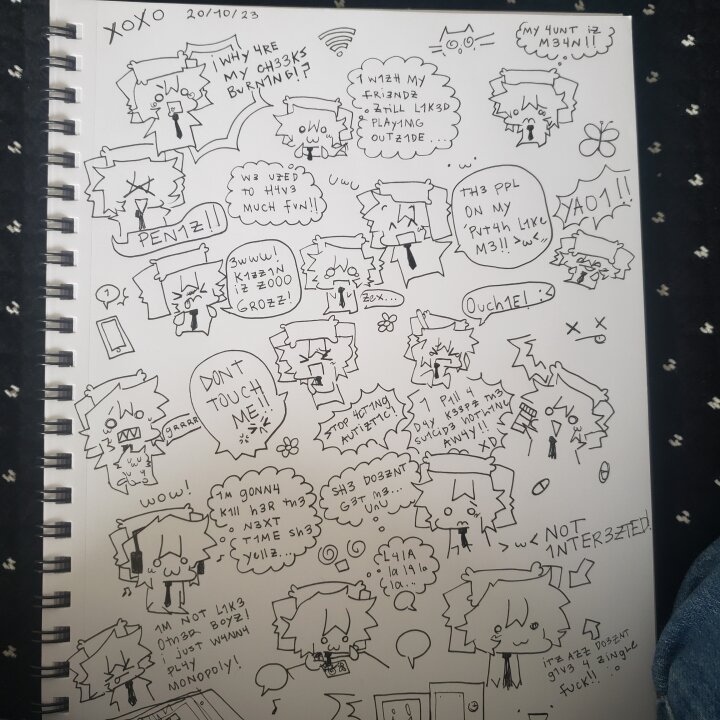 XOXO
20/10/23
¡WHY 4RE
MY CH33KS
BURN1NG!?
1 W1ZH MY
FRI3NDZ
ZTiLL L1K3D
PLAY1MG
OUTZ1DE...
MY 4UNT iZ
M34N!!
W3 UZED
TO H4V3
MUCH FVN!!
UwU
TH3 PPL
ON MY
PUT4H L1KE
M3!! >w<
YAO1!!
PEN1Z!!
3WWW!
K1ZZ1N
iZ ZOOO
GROZZ!
Zex...
OUCH1E! :(
1
DONT
TOUCH
ME!!
grrrr
STOP 4CT1NG
AUTiZT1C!
1 P1ll 4
D4Y K33PZ TH3
SU1C1D3 NOTH1NG
AW4Y!!
XD
WOW!
1M GONN4
K1ll H3R TH3
N3XT
T1ME SH3
Y3llZ...
SH3 DO3ZNT
G3T M3...
UnU
>w<
NOT
1NTER3ZTED!
L41A
la 19 la
la...
1M NOT L1K3
OTH3R BOYZ!
i JUST W4NN4
PL4Y
MONOPOLY!
iTZ AZZ DO3ZNT
G1V3 4 ZiNGLE
FUCK!!